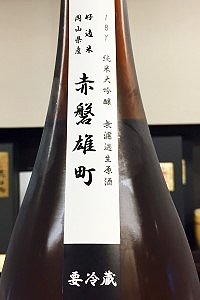 純米大吟醸 無濾過生原酒
好適米
岡山県産
赤磐雄町
要冷蔵